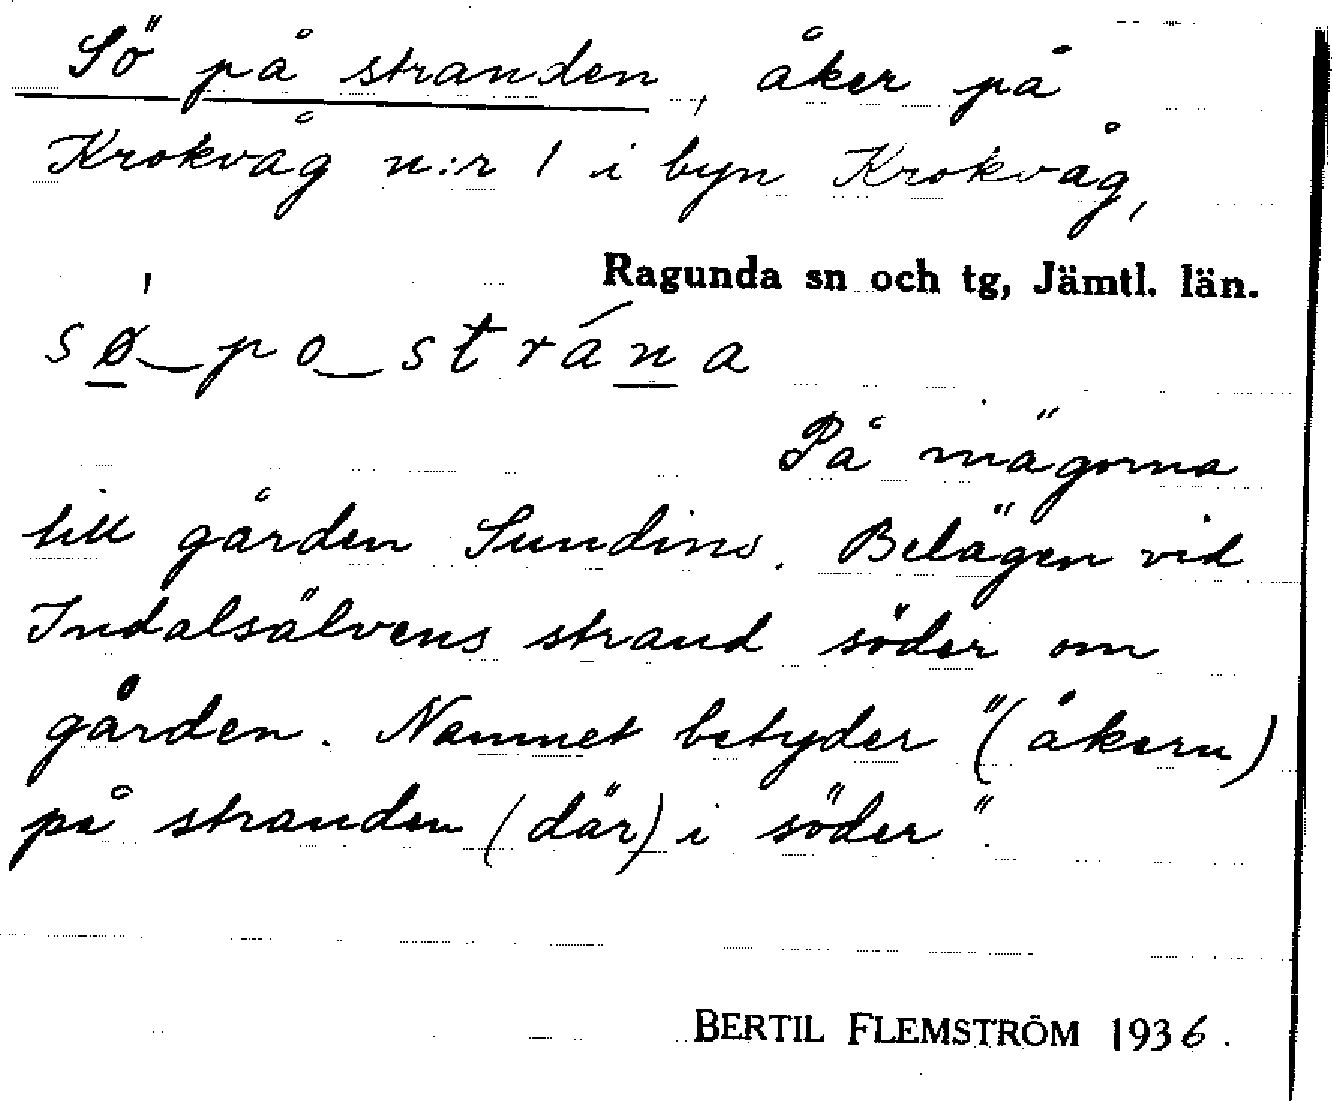 Sö på stranden, åker på
Krokvåg n:r 1 i byn Krokvåg,
Ragunda sn och tg, Jämtl. län.
sø̠ po strána
På mägorna
till gården Sundins. Belägen vid
Indalsälvens strand söder om
gården. Namnet betyder "(åkern)
på stranden (där) i söder".
BERTIL FLEMSTRÖM 1936.